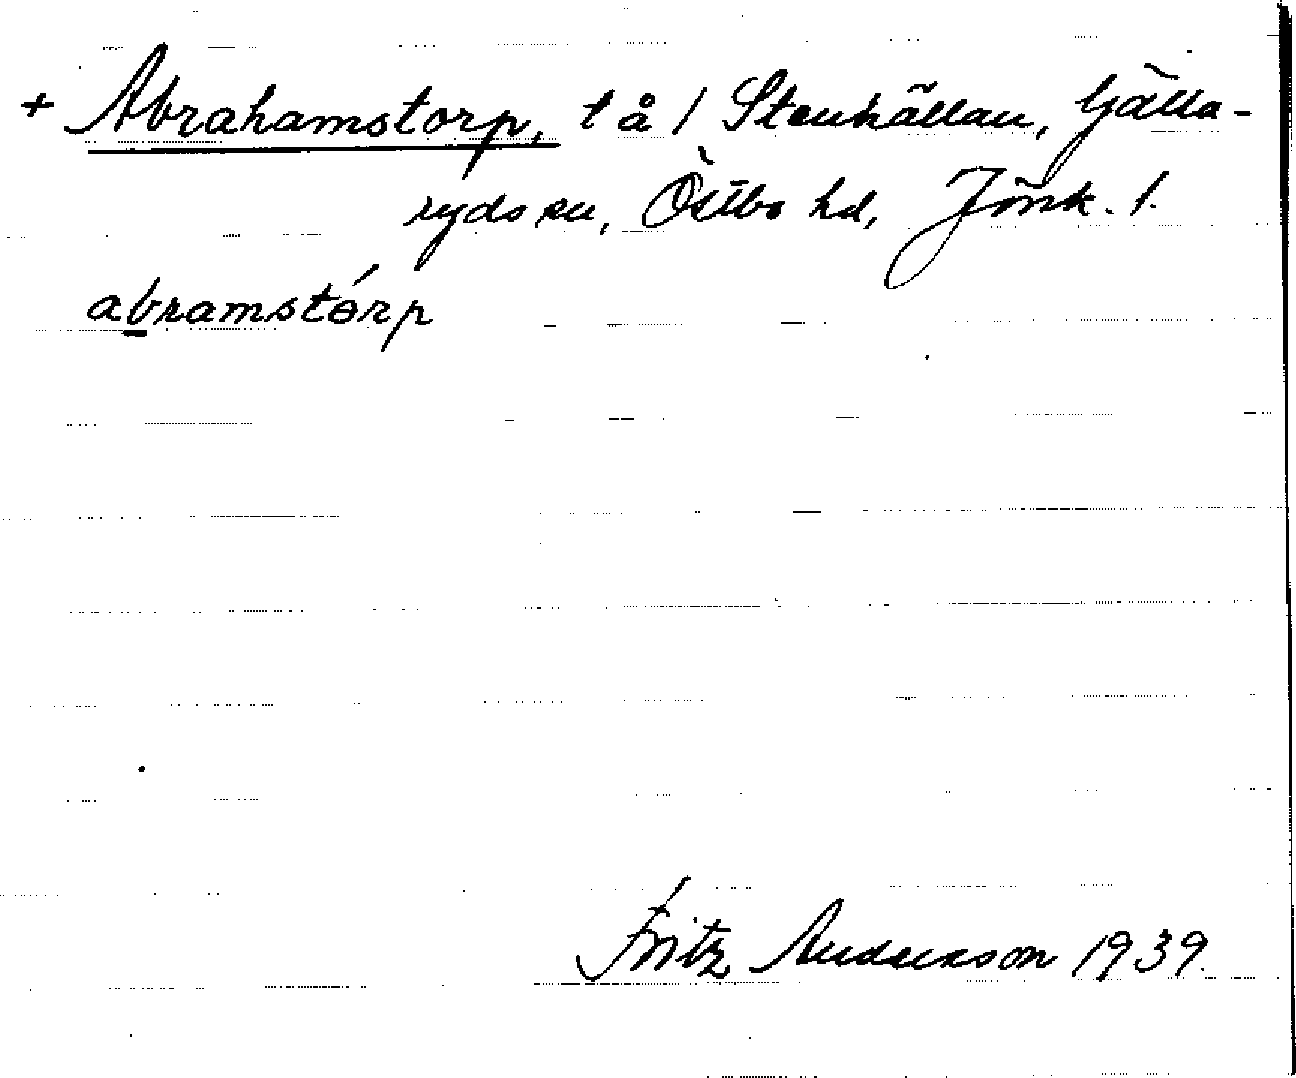 + Abrahamstorp, t å / Stenhällan, Gälla-
ryds sn, Östbo hd, Jönk. l.
abramstórp
Fritz Anderson 1939.